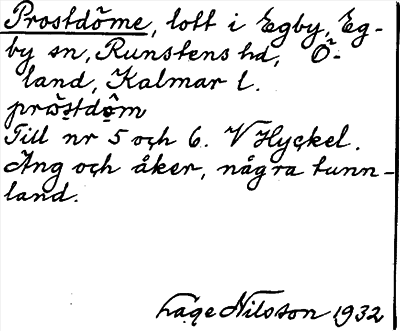 Prostdöme, lott i Egby, Eg-
by sn, Runstens hd, Ö-
land, Kalmar l.
pròstdo̊m
Till nr 5 och 6. V Hyckel.
Äng och åker, några tunn-
land.
Låge Nilsson 1932